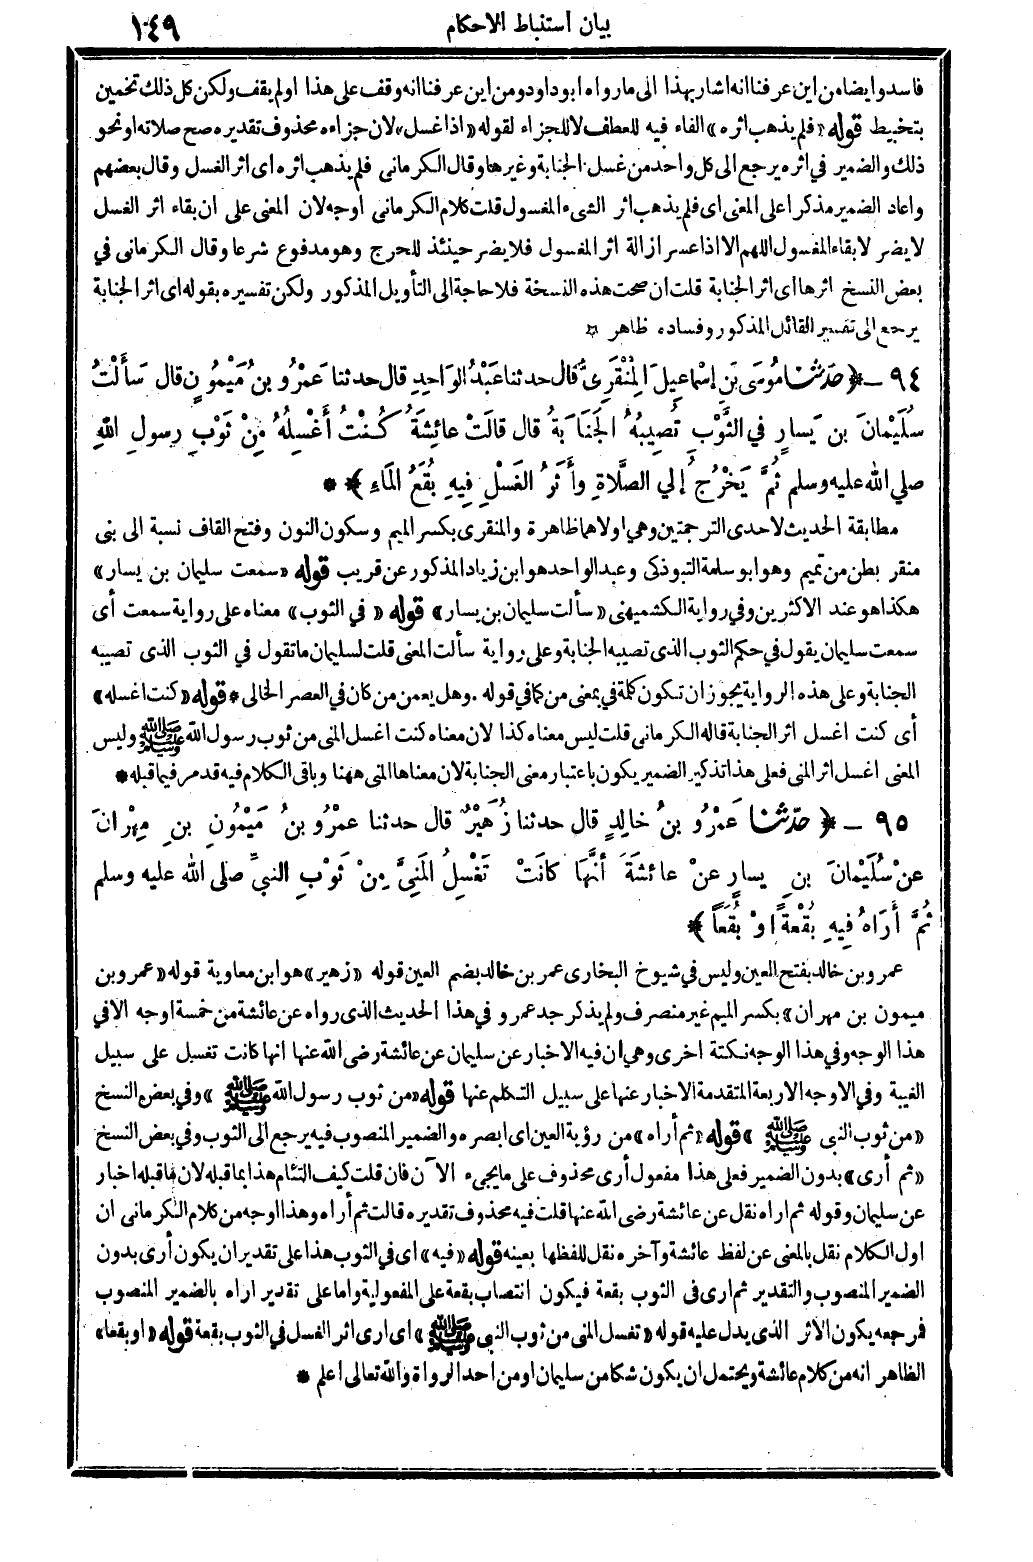 بيان استنباط الاحكام
١٤٩
فاسد وايضا من اين عرفنا انه اشار بهذا الى ما رواه ابو داود ومن اين عرفنا انه وقف على هذا او لم يقف ولكن كل ذلك تخمين
بتخبيط قوله «فلم يذهب اثره» الفاء فيه للعطف لا للجزاء لقوله «اذا غسل» لان جزاءه محذوف تقديره صح صلاته او نحو
ذلك والضمير في اثره يرجع الى كل واحد من غسل الجنابة وغيرها وقال الكرمانى فلم يذهب اثره اى اثر الغسل وقال بعضهم
واعاد الضمير مذكرا على المعنى اى فلم يذهب اثر الشىء المغسول قلت كلام الكرمانى اوجه لان المعنى على ان بقاء اثر الغسل
لا يضر لا بقاء المغسول اللهم الا اذا عسر ازالة اثر المغسول فلا يضر حينئذ للحرج وهو مدفوع شرعا وقال الكرمانى في
بعض النسخ اثرها اى اثر الجنابة قلت ان صحت هذه النسخة فلا حاجة الى التأويل المذكور ولكن تفسيره بقوله اى اثر الجنابة
يرجع الى تفسير القائل المذكور وفساده ظاهر ☆
٩٤ - ﴿ حَدَّثَنَا مُوسَى بنِ إِسْمَاعِيلَ المِنْقَرِىُّ قال حدثنا عَبْدُ الوَاحِدِ قال حدثنا عَمْرُو بنُ مَيْمُونٍ قال سَأَلْتُ
سُلَيْمَانَ بن يَسارٍ في الثَّوْبِ تُصِيبُهُ الجَنَابَةُ قال قالَتْ عائِشَةُ كُنْتُ أَغْسِلُهُ مِنْ ثَوْبِ رسولِ اللهِ
صلي الله عليه وسلم ثُمَّ يَخْرُجُ إلي الصَّلَاةِ وأَثَرُ الغَسْلِ فِيهِ بُقَعُ المَاءِ ﴾ *
مطابقة الحديث لاحدى الترجمتين وهي اولاهما ظاهرة والمنقرى بكسر الميم وسكون النون وفتح القاف نسبة الى بنى
منقر بطن من تميم وهو ابو سلمة التبوذكى وعبد الواحد هو ابن زياد المذكور عن قريب قوله «سمعت سليمان بن يسار»
هكذا هو عند الاكثرين وفي رواية الكشميهنى «سألت سليمان بن يسار» قوله « في الثوب» معناه على رواية سمعت أى
سمعت سليمان يقول في حكم الثوب الذى تصيبه الجنابة وعلى رواية سألت المعنى قلت لسليمان ما تقول في الثوب الذى تصيبه
الجنابة وعلى هذه الرواية يجوز ان تكون كلمة في بمعنى من كما في قوله . وهل يعمن من كان في العصر الخالى * قوله «كنت اغسله»
أى كنت اغسل اثر الجنابة قاله الكرمانى قلت ليس معناه كذا لان معناه كنت اغسل المنى من ثوب رسول الله ﷺ وليس
المعنى اغسل اثر المنى فعلى هذا تذكير الضمير يكون باعتبار معنى الجنابة لان معناها المنى ههنا وباقى الكلام فيه قد مر فيما قبله *
٩٥ - ﴿ حَدَّثَنَا عَمْرُو بنُ خالِدٍ قال حدثنا زُهَيْرٌ قال حدثنا عمْرُو بنُ مَيْمُونِ بنِ مِهْرَانَ
عنْ سُلَيْمَانَ بنِ يسارٍ عنْ عائشَةَ أنَّهَا كانَتْ تَغْسِلُ المَنِيَّ مِنْ ثَوْبِ النبيِّ صلى الله عليه وسلم
ثُمَّ أَرَاهُ فِيهِ بُقْعَةً اوْ بُقَعًا ﴾ *
عمرو بن خالد بفتح العين وليس في شيوخ البخارى عمر بن خالد بضم العين قوله «زهير» هو ابن معاوية قوله «عمرو بن
ميمون بن مهران» بكسر الميم غير منصرف ولم يذكر جد عمرو في هذا الحديث الذى رواه عن عائشة من خمسة اوجه الا في
هذا الوجه وفي هذا الوجه نكتة اخرى وهي ان فيه الاخبار عن سليمان عن عائشة رضى الله عنها انها كانت تغسل على سبيل
الغيبة وفي الاوجه الاربعة المتقدمة الاخبار عنها على سبيل التكلم عنها قوله «من ثوب رسول الله ﷺ» وفي بعض النسخ
«من ثوب النبى ﷺ» قوله «ثم أراه» من رؤية العين اى ابصره والضمير المنصوب فيه يرجع الى الثوب وفي بعض النسخ
«ثم أرى» بدون الضمير فعلى هذا مفعول أرى محذوف على ما يجىء الآن فان قلت كيف التئام هذا بما قبله لان ما قبله اخبار
عن سليمان وقوله ثم اراه نقل عن عائشة رضى الله عنها قلت فيه محذوف تقديره قالت ثم أراه وهذا اوجه من كلام الكرمانى ان
اول الكلام نقل بالمعنى عن لفظ عائشة وآخره نقل للفظها بعينه قوله «فيه» اى في الثوب هذا على تقدير ان يكون أرى بدون
الضمير المنصوب والتقدير ثم ارى فى الثوب بقعة فيكون انتصاب بقعة على المفعولية واما على تقدير اراه بالضمير المنصوب
فمرجعه يكون الاثر الذى يدل عليه قوله «تغسل المنى من ثوب النبى ﷺ» اى ارى اثر الغسل في الثوب بقعة قوله «او بقعا»
الظاهر انه من كلام عائشة ويحتمل ان يكون شكا من سليمان او من احد الرواة والله تعالى اعلم *